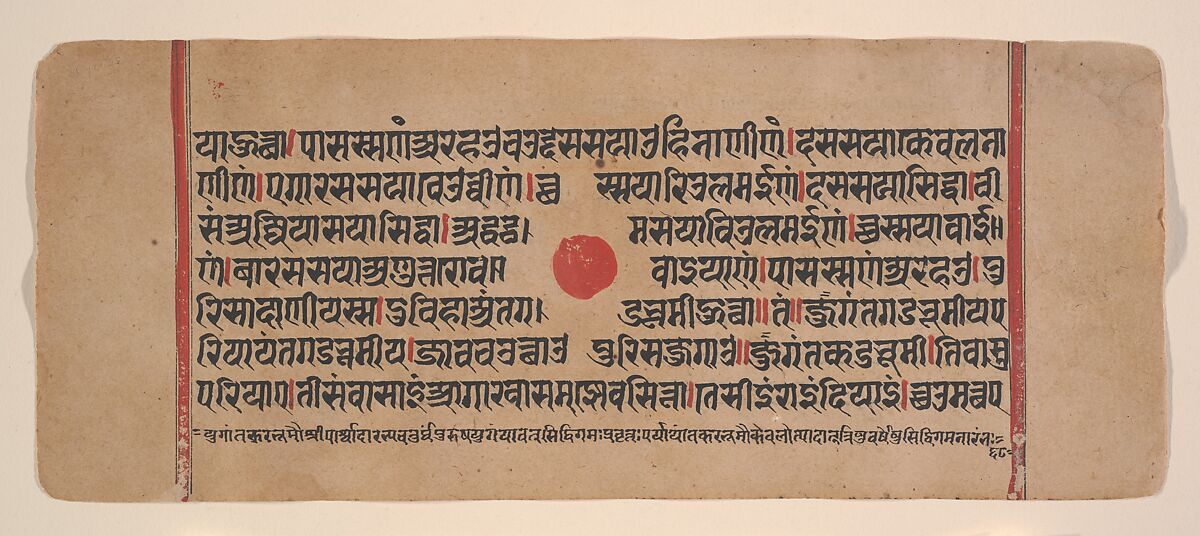 याहुत्था।पासस्सणंअरहउचउद्दससयाउहिनाणीणं।दससयाकेवलना
णीणं।एगारससयावेउव्वीणं।छ स्सयारिउलमईणं।दससयासिद्धा।वी
संअज्जियासयासिद्धा।अद्धट्ठ। मसयाविउलमईणं।छस्सयावाई॥
णं।बारससयाअणुत्तरोव॥ वाइयाणं।पासस्सणंअरहउ।पु
रिसादाणीयस्स।दुविहाअंतग। डभूमीहुत्था॥तं॥जुगंतगडभूमीयप
रियायंतगडभूमीय।जावचउत्थाउ पुरिसजुगाउ॥जुगंतकडभूमी।तिवास
परियाए।तीसंवासाइंआगारवासमज्झेवसित्ता।तेसीइंराइंदियाइं।छउमत्थप
=युगांतकरभूमौश्रीपार्श्वादारभ्यचतुर्थंपुरुषयुगंयावत्सिद्धिगमःप्रवृत्तःपर्यायांतकरभूमौकेवलोत्पादात्त्रिषुवर्षेषुसिद्धिगमनारंभः=
६८